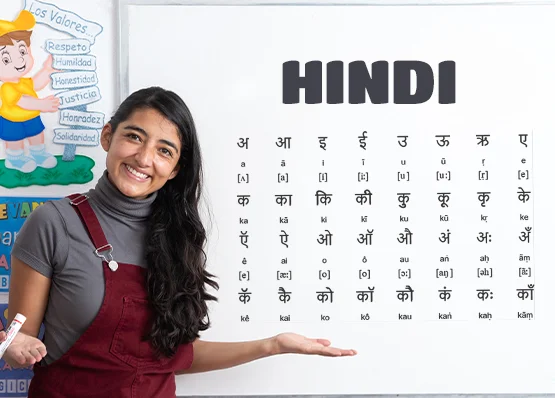 Los Valores...
Respeto
Humildad
Honestidad
Justicia
Honradez
Solidaridad
HINDI
अ आ इ ई उ ऊ ऋ ए
a ā i ī u ū ṛ e
[ʌ] [ɑː] [i] [iː] [u] [uː] [r] [e]
क का कि की कु कू कृ के
ka kā ki kī ku kū kṛ ke
ऍ ऐ ओ ऑ औ अं अः अँ
ê ai o ô au aṅ aḥ āṃ
कॅ कै को कॉ कौ कं कः काँ
kê kai ko kô kau kaṅ kaḥ kāṃ